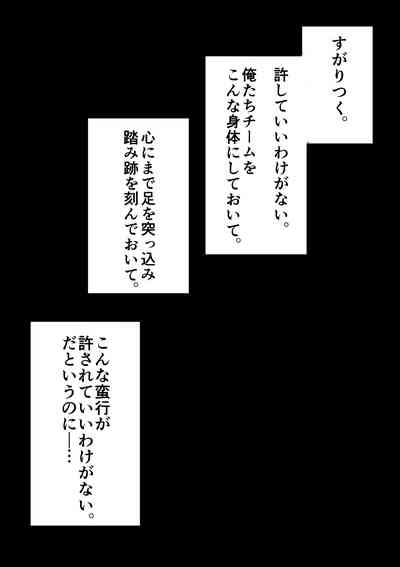 すがりつく。
許していいわけがない。
俺たちチームを
こんな身体にしておいて。
心にまで足を突っ込み
踏み跡を刻んでおいて。
こんな蛮行が
許されていいわけがない。
だというのに──…